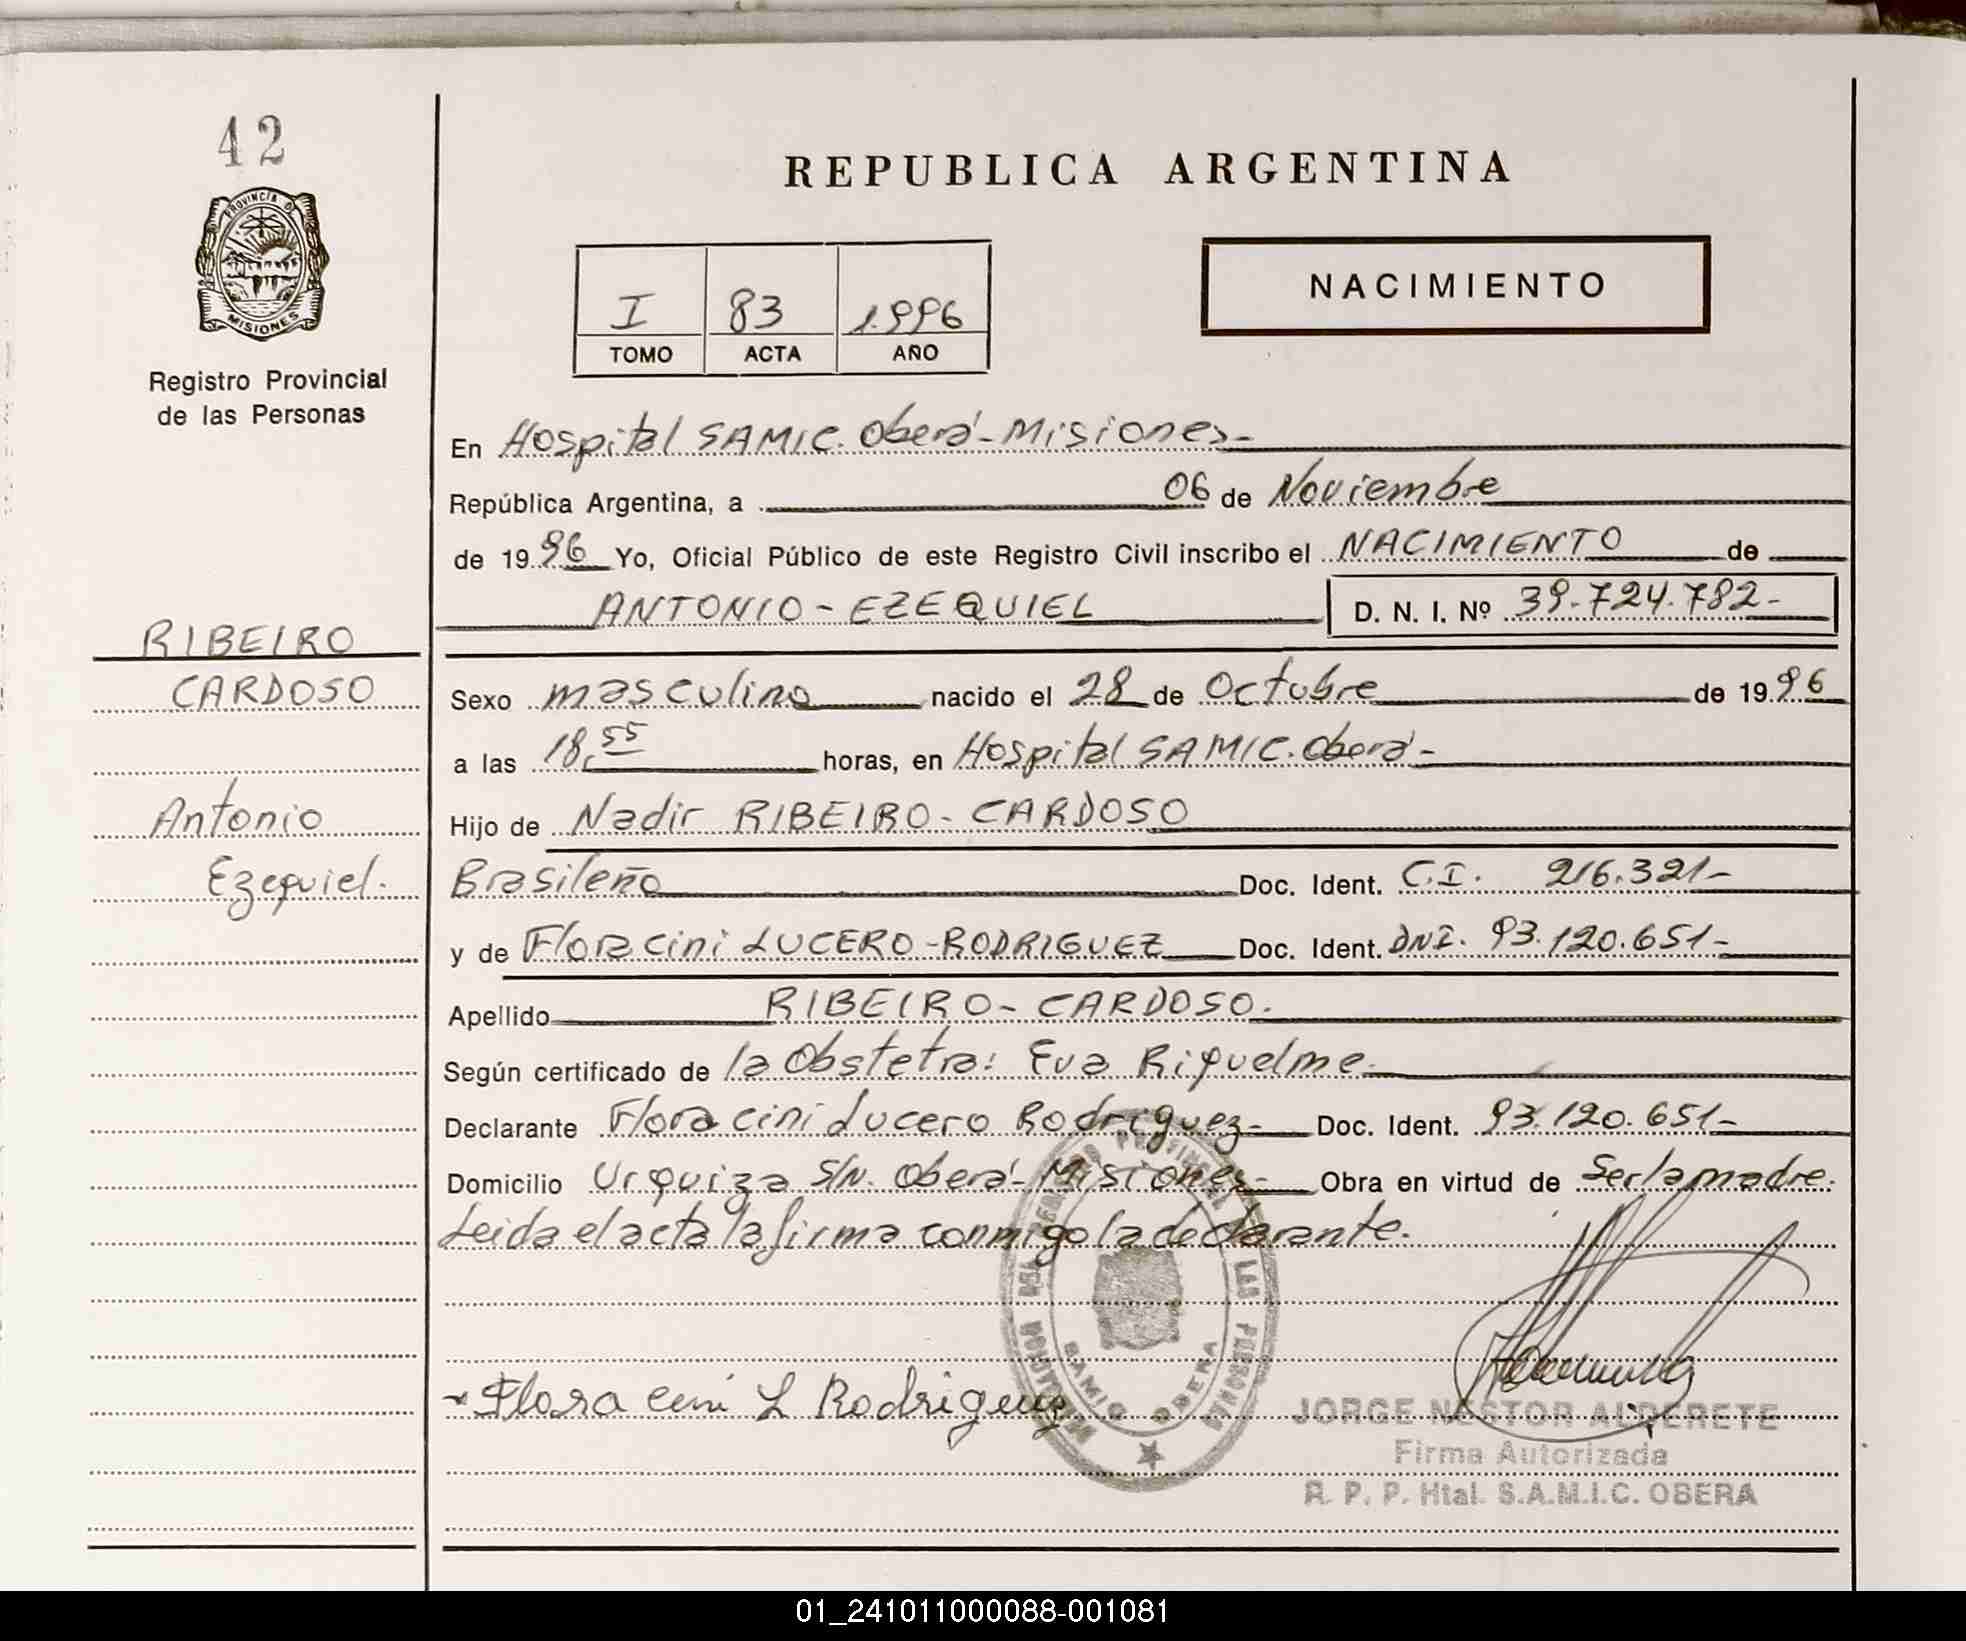 42
PROVINCIA D
MISIONES
Registro Provincial
de las Personas
REPUBLICA ARGENTINA
I 83 1.996
TOMO ACTA AÑO
NACIMIENTO
En Hospital SAMIC. Oberá-Misiones-
República Argentina, a 06 de Noviembre
de 1996 Yo, Oficial Público de este Registro Civil inscribo el NACIMIENTO de
ANTONIO - EZEQUIEL D. N. I. Nº 39.724.782-
RIBEIRO
CARDOSO
Antonio
Ezequiel.
Sexo masculino nacido el 28 de Octubre de 1996
a las 18,55 horas, en Hospital SAMIC. Oberá-
Hijo de Nadir RIBEIRO - CARDOSO
Brasileño Doc. Ident. C.I. 216.321-
y de Flora cini LUCERO-RODRIGUEZ Doc. Ident. DNI. 93.120.651-
Apellido RIBEIRO - CARDOSO.
Según certificado de la Obstetra: Eva Riquelme.
Declarante Flora cini Lucero Rodriguez- Doc. Ident. 93.120.651-
Domicilio Urquiza S/N. Oberá-Misiones- Obra en virtud de Ser la madre.
Leida el acta la firma conmigo la declarante.
Flora cini L Rodriguez
SAMIC OBERA
JORGE NESTOR ALDERETE
Firma Autorizada
R. P. P. Htal. S.A.M.I.C. OBERA
01_241011000088-001081